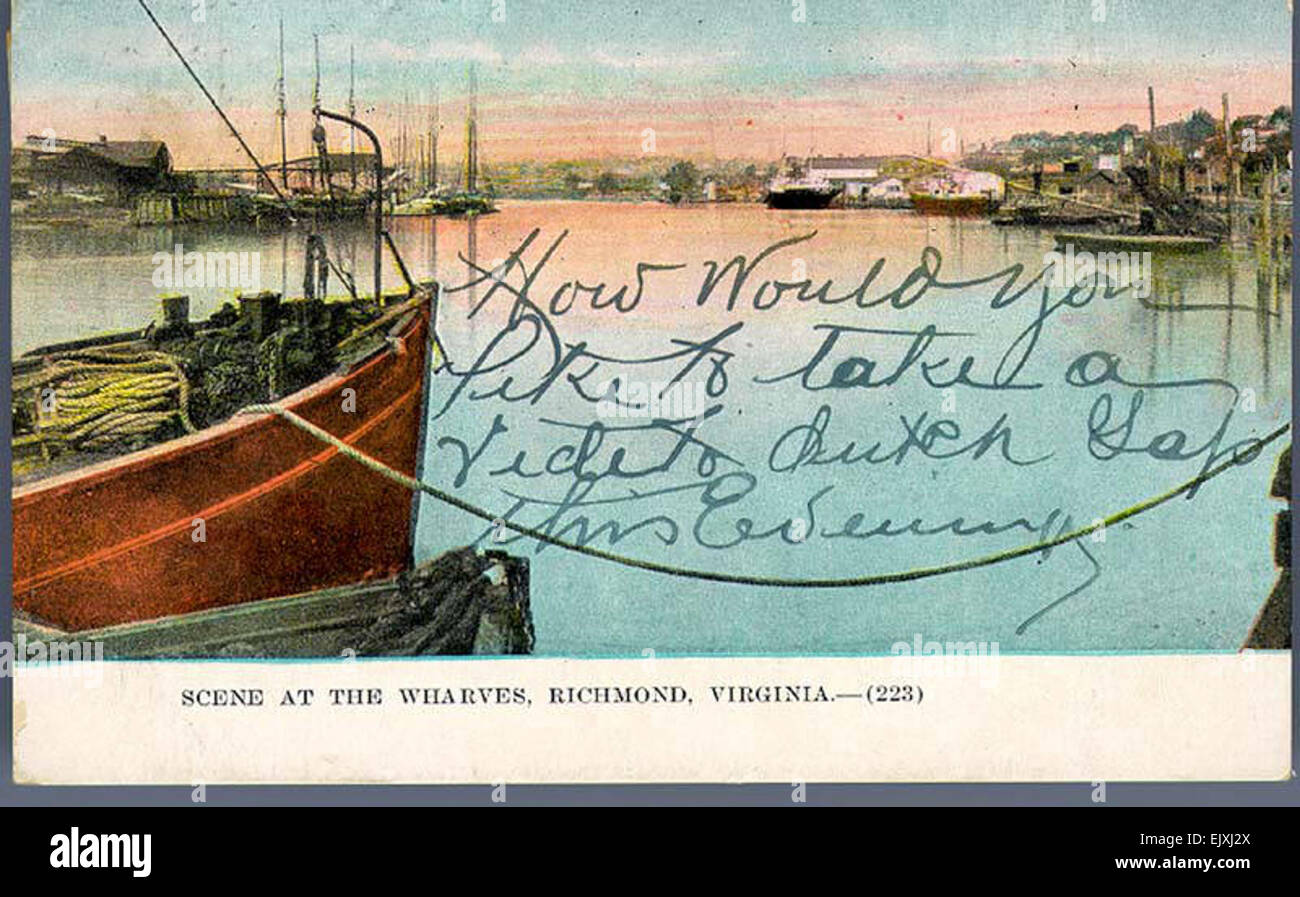 How Would You
like to take a
ride to dutch Gap
this Evening.
SCENE AT THE WHARVES, RICHMOND, VIRGINIA.—(223)
a
alamy
alamy stock photo
EJXJ2X
www.alamy.com